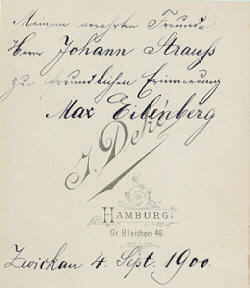 Meinem verehrten Freunde
Herrn Johann Strauss
zur freundlichen Erinnerung
Max Eilenberg
J. Deke
HAMBURG
Gr. Bleichen 46.
Zwickau 4. Sept. 1900.